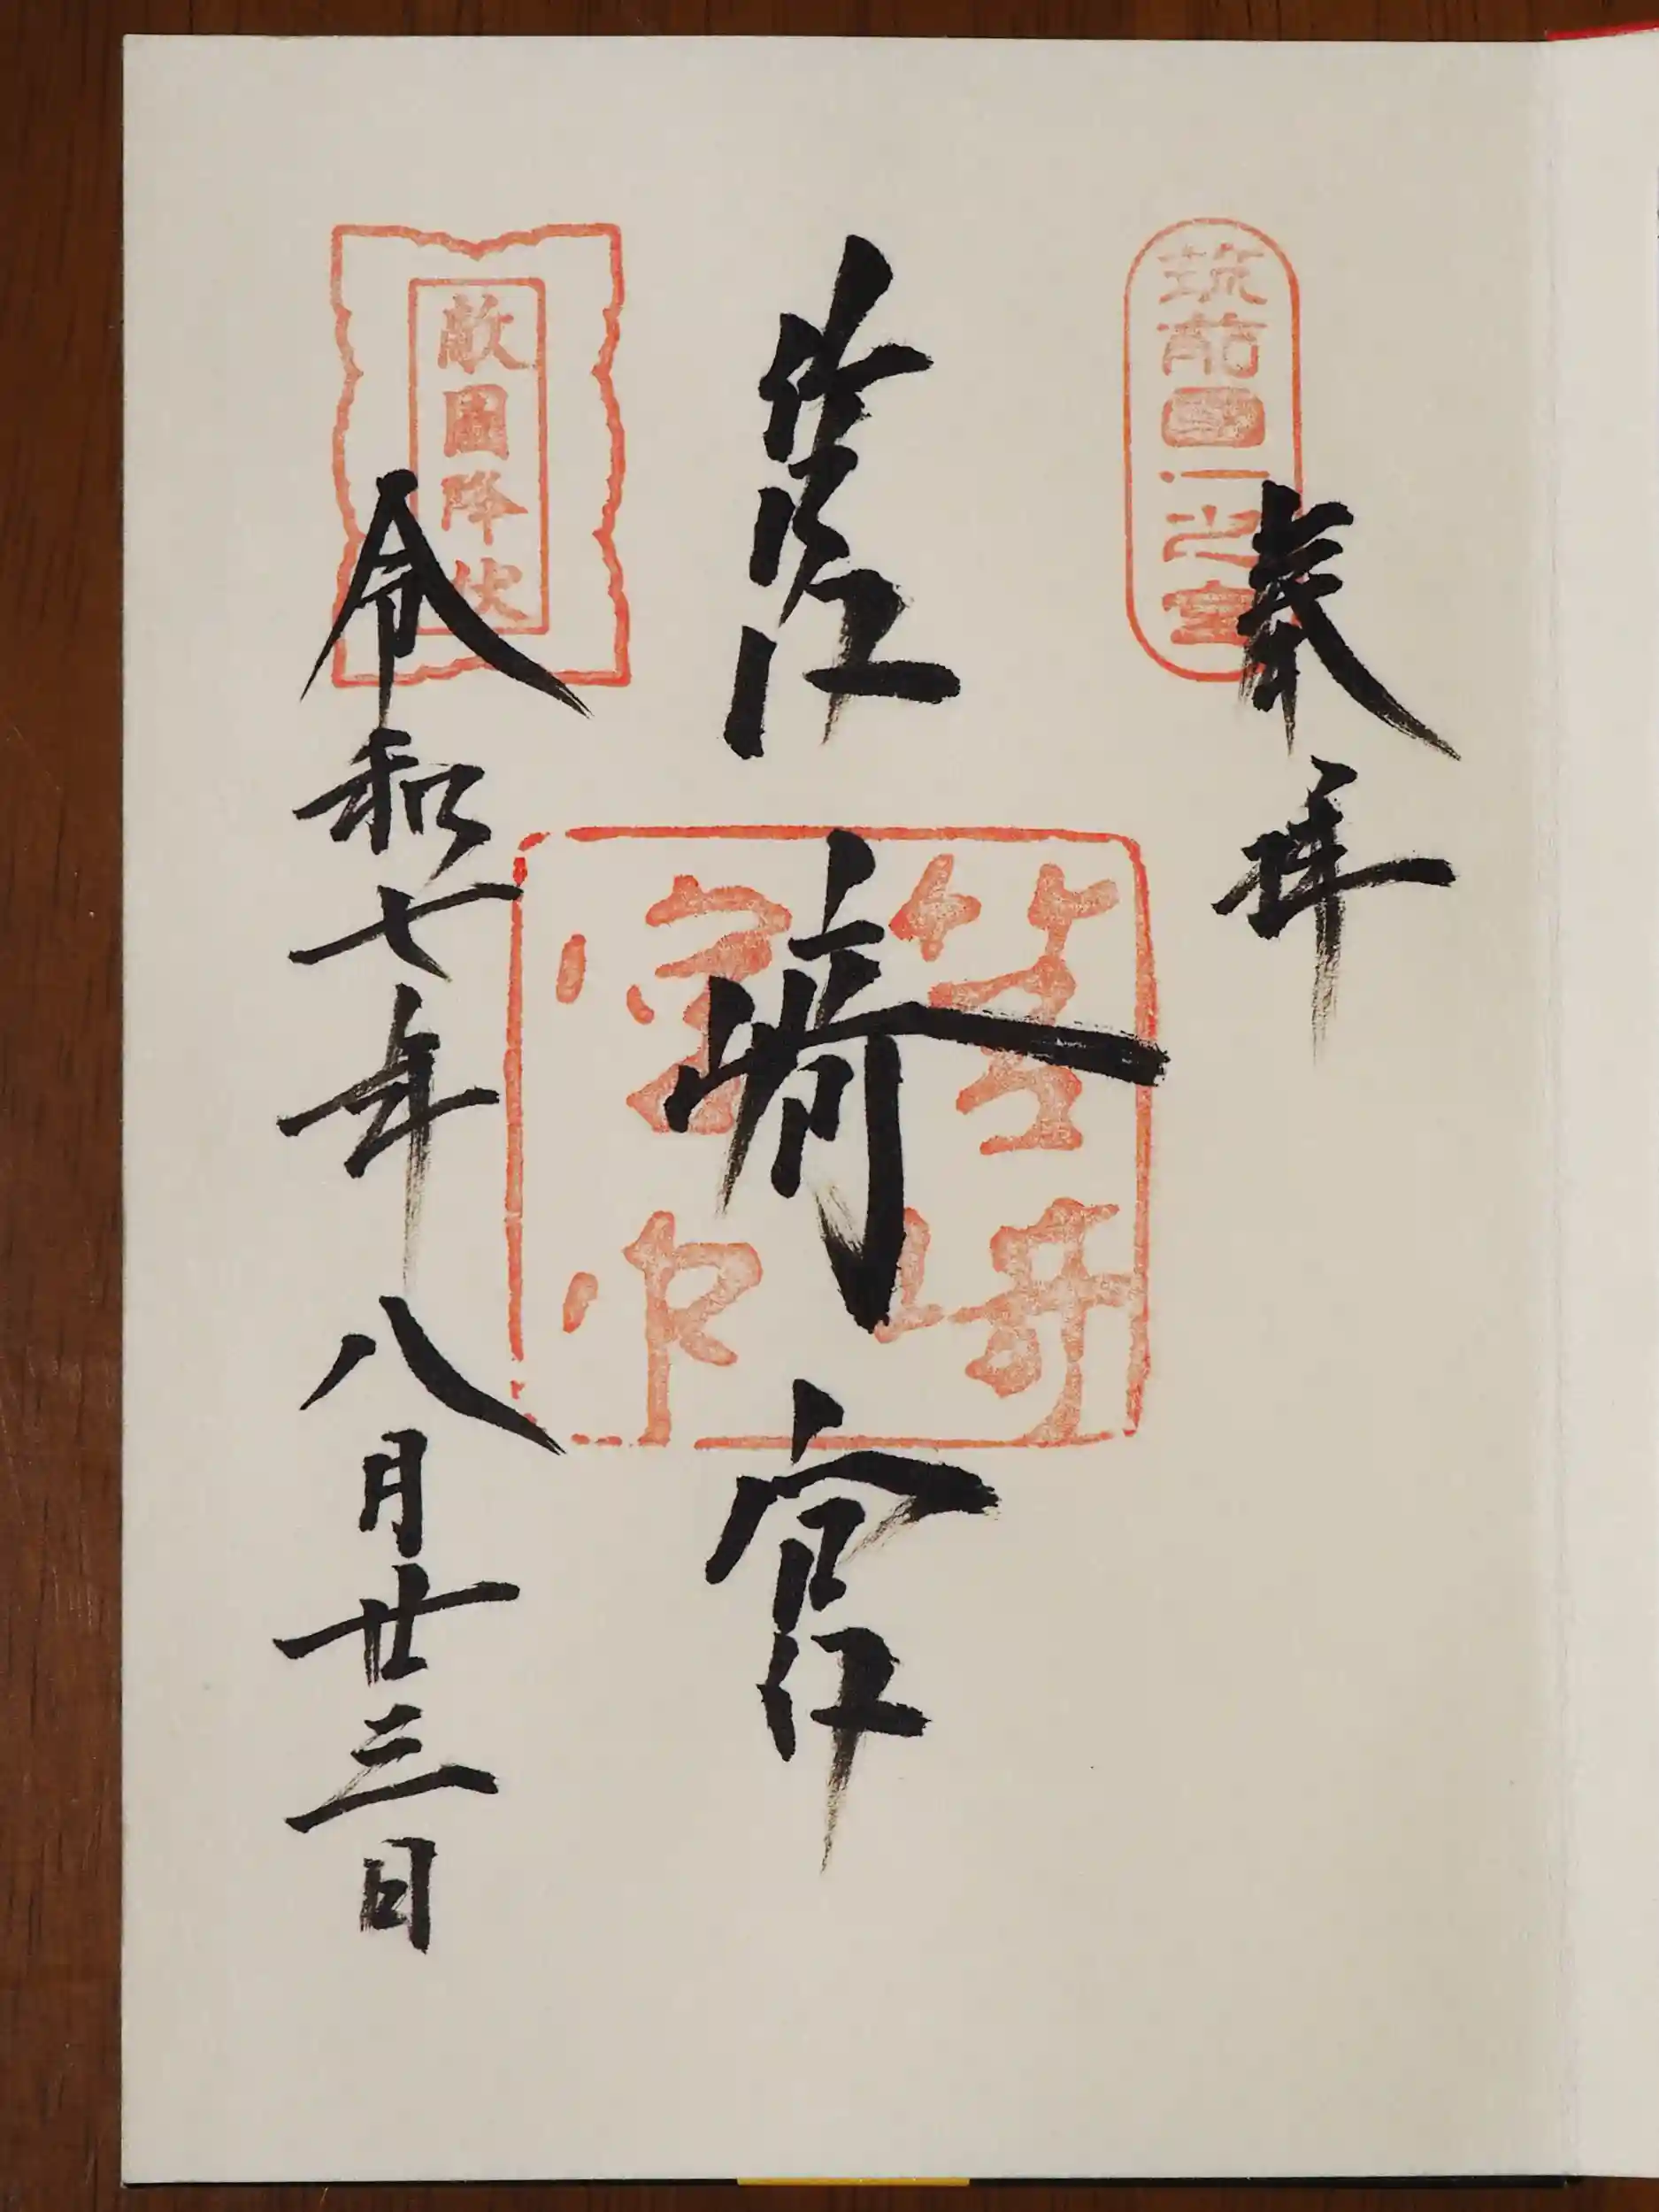 奉拝
筑前國一之宮
筥崎宮
筥崎宮印
敵國降伏
令和七年八月廿三日